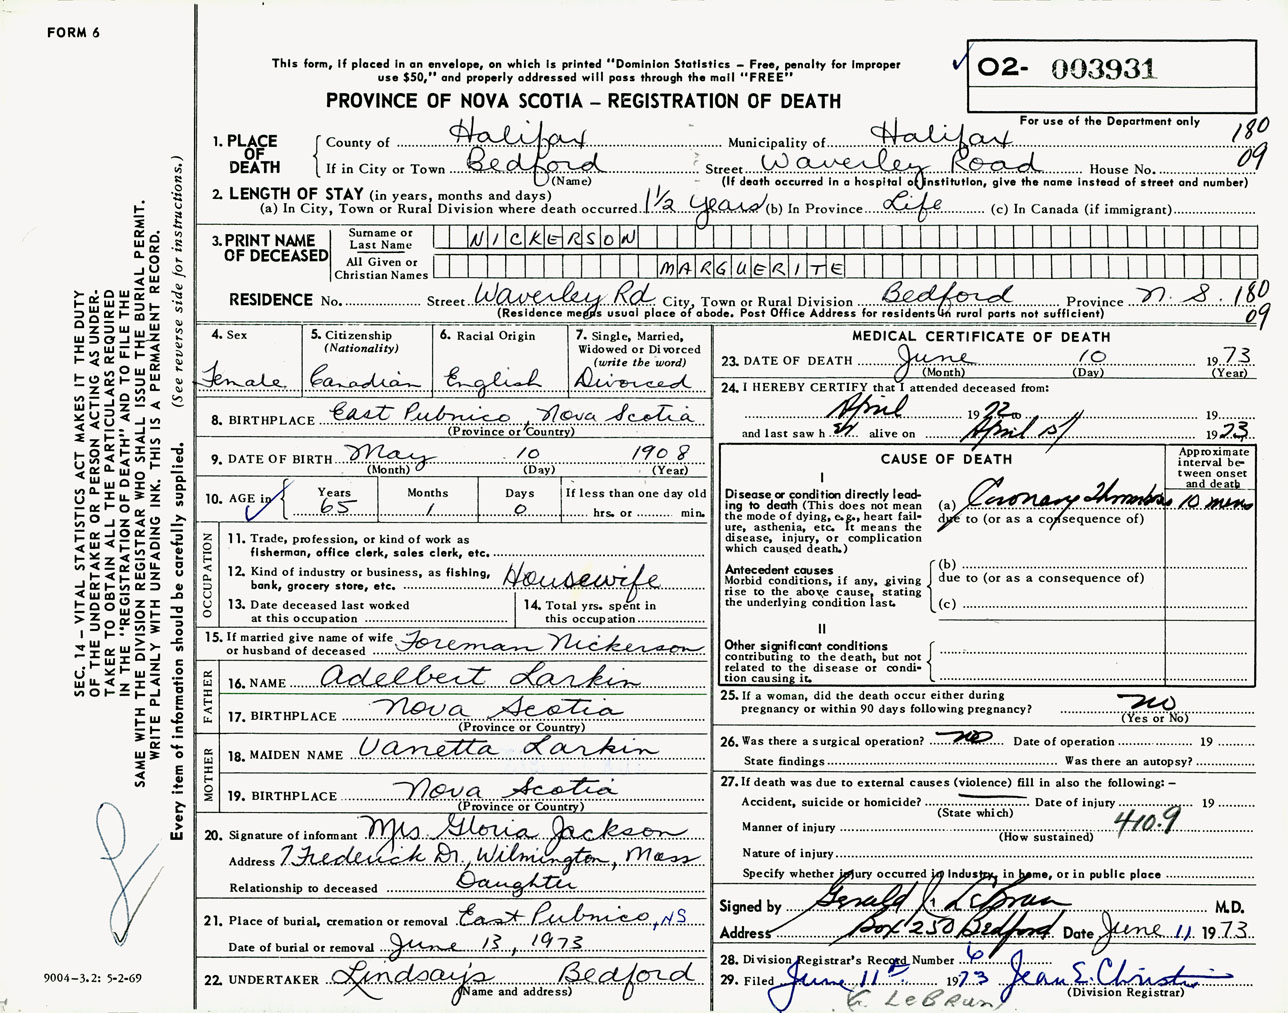 FORM 6
This form, if placed in an envelope, on which is printed "Dominion Statistics – Free, penalty for improper
use $50," and properly addressed will pass through the mail "FREE"
PROVINCE OF NOVA SCOTIA – REGISTRATION OF DEATH
O2- 003931
For use of the Department only
180
09
1. PLACE OF DEATH
County of Halifax Municipality of Halifax
If in City or Town Bedford Street Waverley Road House No.
(Name) (If death occurred in a hospital or institution, give the name instead of street and number)
2. LENGTH OF STAY (in years, months and days)
(a) In City, Town or Rural Division where death occurred 1 1/2 years (b) In Province Life (c) In Canada (if immigrant)
3. PRINT NAME OF DECEASED
Surname or Last Name NICKERSON
All Given or Christian Names MARGUERITE
RESIDENCE No. Street Waverley Rd City, Town or Rural Division Bedford Province N.S. 180
(Residence means usual place of abode. Post Office Address for residents in rural parts not sufficient) 09
4. Sex Female
5. Citizenship (Nationality) Canadian
6. Racial Origin English
7. Single, Married, Widowed or Divorced (write the word) Divorced
8. BIRTHPLACE East Pubnico, Nova Scotia
(Province or Country)
9. DATE OF BIRTH May 10 1908
(Month) (Day) (Year)
10. AGE in Years 65 Months 1 Days 0 If less than one day old hrs. or min.
OCCUPATION
11. Trade, profession, or kind of work as
fisherman, office clerk, sales clerk, etc.
12. Kind of industry or business, as fishing,
bank, grocery store, etc. Housewife
13. Date deceased last worked
at this occupation
14. Total yrs. spent in
this occupation
15. If married give name of wife
or husband of deceased Foreman Nickerson
FATHER
16. NAME Adelbert Larkin
17. BIRTHPLACE Nova Scotia
(Province or Country)
MOTHER
18. MAIDEN NAME Vanetta Larkin
19. BIRTHPLACE Nova Scotia
(Province or Country)
20. Signature of informant Mrs Gloria Jackson
Address 7 Frederick Dr., Wilmington, Mass
Relationship to deceased Daughter
21. Place of burial, cremation or removal East Pubnico, NS
Date of burial or removal June 13, 1973
22. UNDERTAKER Lindsay's Bedford
(Name and address)
MEDICAL CERTIFICATE OF DEATH
23. DATE OF DEATH June 10 1973
(Month) (Day) (Year)
24. I HEREBY CERTIFY that I attended deceased from:
April 1972 19
and last saw her alive on April 1973
CAUSE OF DEATH
Approximate interval between onset and death
I
Disease or condition directly lead-
ing to death (This does not mean
the mode of dying, e.g., heart fail-
ure, asthenia, etc. It means the
disease, injury, or complication
which caused death.)
(a) Coronary Thrombosis 10 mins
due to (or as a consequence of)
Antecedent causes
Morbid conditions, if any, giving
rise to the above cause, stating
the underlying condition last.
(b)
due to (or as a consequence of)
(c)
II
Other significant conditions
contributing to the death, but not
related to the disease or condi-
tion causing it.
25. If a woman, did the death occur either during
pregnancy or within 90 days following pregnancy? no
(Yes or No)
26. Was there a surgical operation? no Date of operation 19
State findings Was there an autopsy?
27. If death was due to external causes (violence) fill in also the following: –
Accident, suicide or homicide? Date of injury 19
(State which)
Manner of injury 410.9
(How sustained)
Nature of injury
Specify whether injury occurred in industry, in home, or in public place
Signed by Gerald J. LeBrun M.D.
Address Box 250 Bedford Date June 11 1973
28. Division Registrar's Record Number 6
29. Filed June 11th 1973 Jean E. Christie
(Division Registrar)
G. LeBRUN
SEC. 14 – VITAL STATISTICS ACT MAKES IT THE DUTY
OF THE UNDERTAKER OR PERSON ACTING AS UNDER-
TAKER TO OBTAIN ALL THE PARTICULARS REQUIRED
IN THE "REGISTRATION OF DEATH" AND TO FILE THE
SAME WITH THE DIVISION REGISTRAR WHO SHALL ISSUE THE BURIAL PERMIT.
WRITE PLAINLY WITH UNFADING INK. THIS IS A PERMANENT RECORD.
Every item of information should be carefully supplied. (See reverse side for instructions.)
9004-3.2: 5-2-69